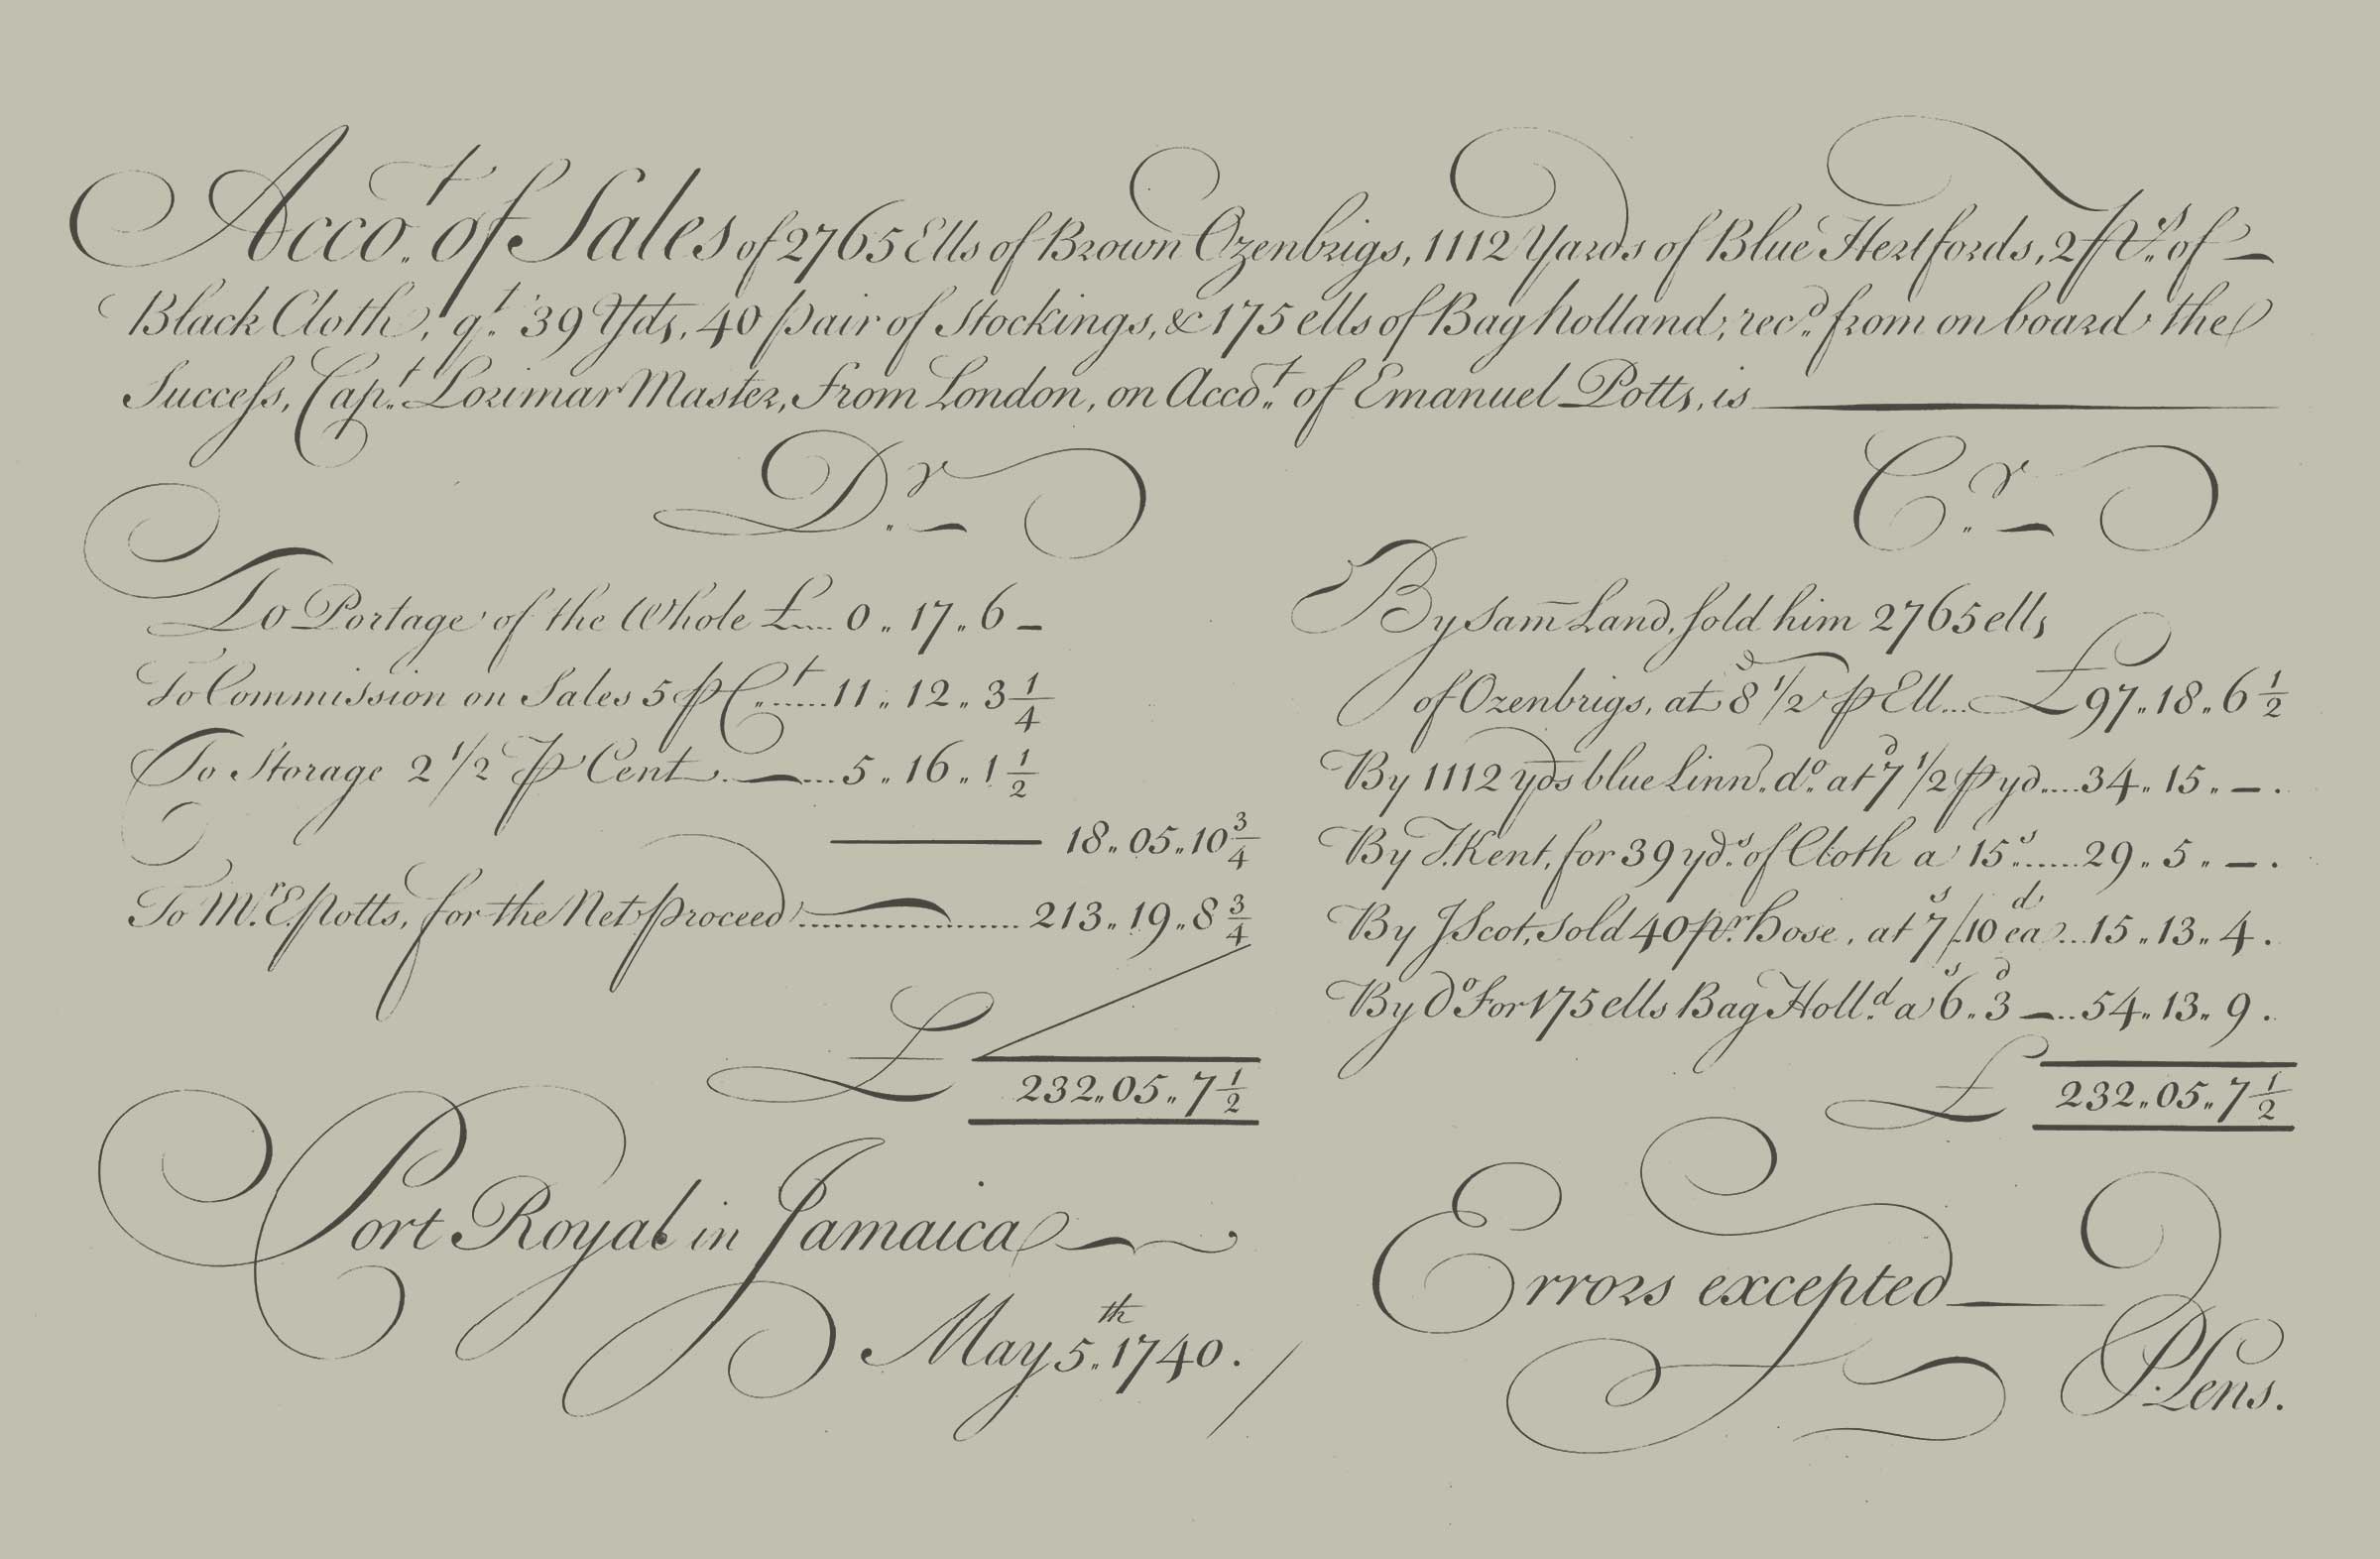 Acco.t of Sales of 2765 Ells of Brown Ozenbrigs, 1112 Yards of Blue Hertfords, 2 p.s of
Black Cloth, q.t 39 Yds, 40 pair of Stockings, & 175 ells of Bag holland, rec.d from on board the
Success, Cap.t Lorimar Master, From London, on Acco.t of Emanuel Potts, is
D.r
To Portage of the Whole £ .... 0 „ 17 „ 6 –
To Commission on Sales 5 ⅌ C.t ...... 11 „ 12 „ 3 1/4
To Storage 2 1/2 ⅌ Cent. .... 5 „ 16 „ 1 1/2
18 „ 05 „ 10 3/4
To M.r E. Potts, for the Net proceed .................. 213 „ 19 „ 8 3/4
£ 232 „ 05 „ 7 1/2
Port Royal in Jamaica
May 5.th 1740.
C.r
By Sam̅ Land, sold him 2765 ells
of Ozenbrigs, at 8 1/2 d ⅌ Ell ... £ 97 „ 18 „ 6 1/2
By 1112 yds blue Linn. d.o at 7 1/2 d ⅌ yd .... 34 „ 15 „ – .
By T. Kent, for 39 yd.s of Cloth a 15.s ..... 29 „ 5 „ – .
By J Scot, sold 40 p.r Hose, at 7s/10d ea ... 15 „ 13 „ 4 .
By Do For 175 ells Bag Holl.d a 6s „ 3d – .. 54 „ 13 „ 9 .
£ 232 „ 05 „ 7 1/2
Errors excepted
P. Lens.